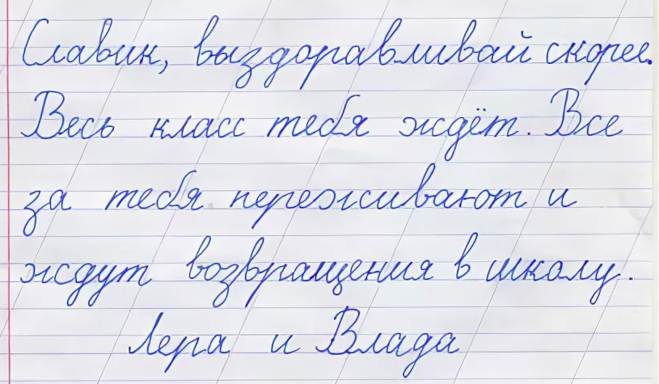 Славик, выздоравливай скорее.
Весь класс тебя ждёт. Все
за тебя переживают и
ждут возвращения в школу.
Лера и Влада